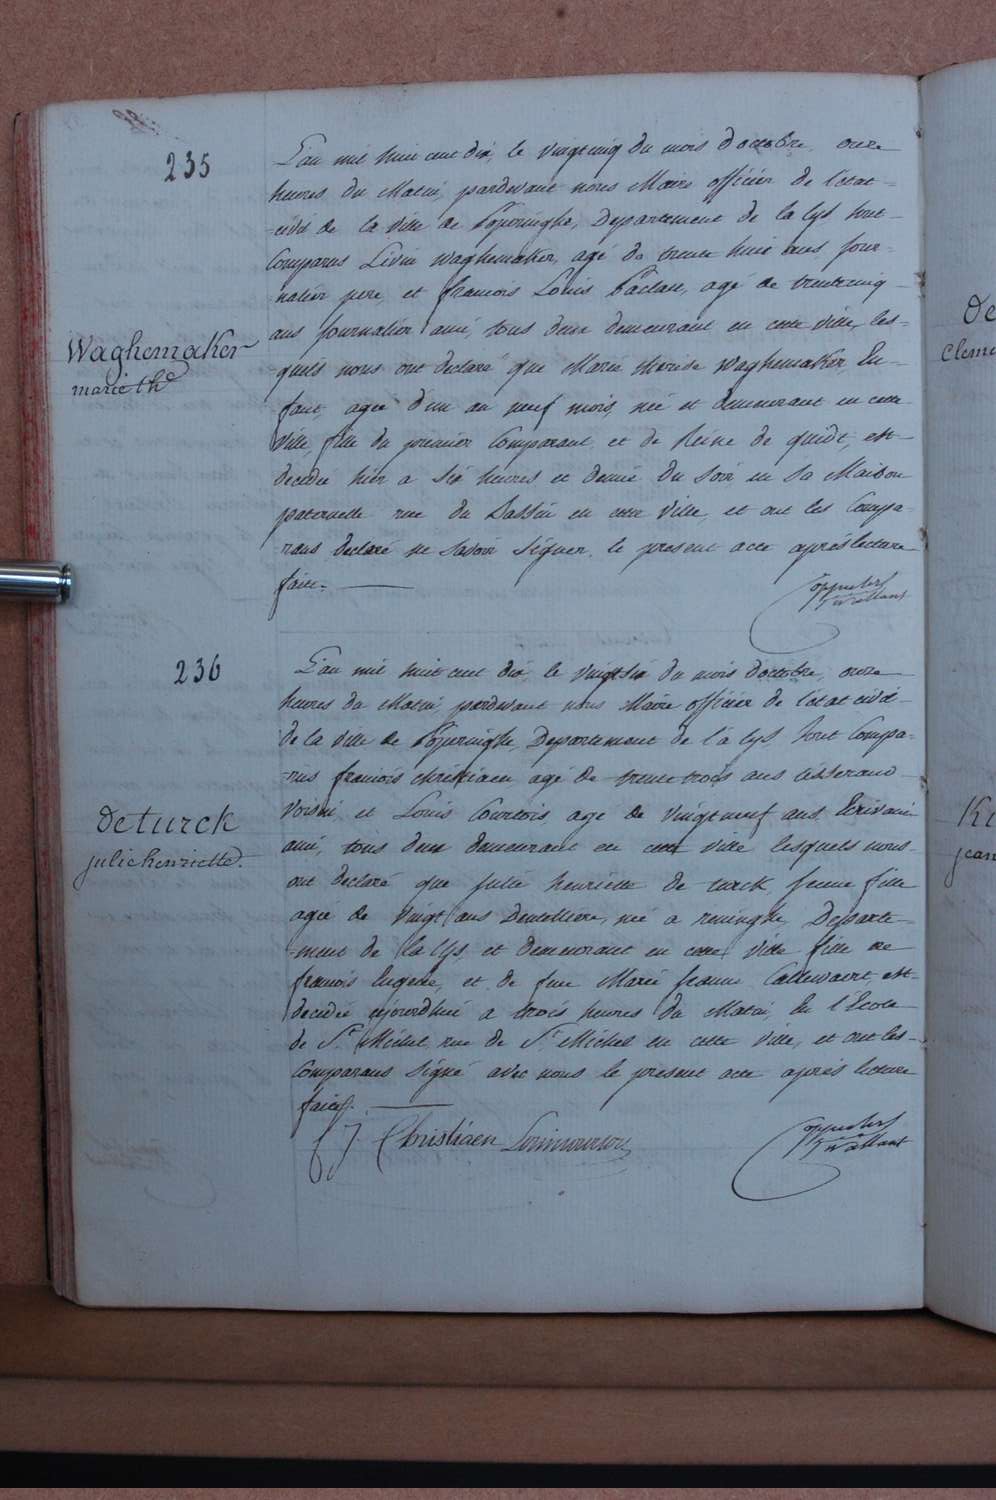 235
L'an mil huit cent dix, le vingtcinq du mois d'octobre, onze
heures du Matin, pardevant nous Maire officier de l'état=
civil de la ville de Poperinghe, Departement de la Lys, sont
Comparus Livin Waghemaker, agé de trente huit ans, jour-
nalier pere, et francois Louis, agé de trentecinq
ans journalier ami, tous deux demeurant en cette ville, les-
quels nous ont declaré que Marie therese Waghemaker En-
fant, agee d'un an neuf mois, née et demeurant en cette
ville, fille du premier Comparant et de Reine de quidt, est
decedée hier a six heures et demie du soir en sa Maison
paternelle rue du Bassin en cette ville, et ont les Compa-
rans declaré ne savoir signer, le present acte après lecture
faite.
Waghemaker
marie thé
236
L'an mil huit cent dix, le vingtsix du mois d'octobre, onze
heures du Matin, pardevant nous Maire officier de l'état civil
de la ville de Poperinghe, Departement de la Lys, sont Compa-
rus francois christiaen agé de trente trois ans tisserand
voisin, et Louis Courtois agé de vingtneuf ans, Ecrivain
ami, tous deux demeurant en cette ville lesquels nous
ont declaré que julie henriette de turck, jeune fille
agée de vingt ans Dentelliere, née a reninghe, Departe-
ment de la Lys, et demeurant en cette ville fille de
francois Eugene, et de feue Marie jeanne Callewaert, est
decedée ajourdhui a trois heures du Matin, En l'Ecole
de St. Michel, rue de St. Michel en cette ville, et ont les
Comparans signé avec nous le present acte après lecture
faite.
deturck
julie henriette.
f J. Christiaen
De
Cleme
jean